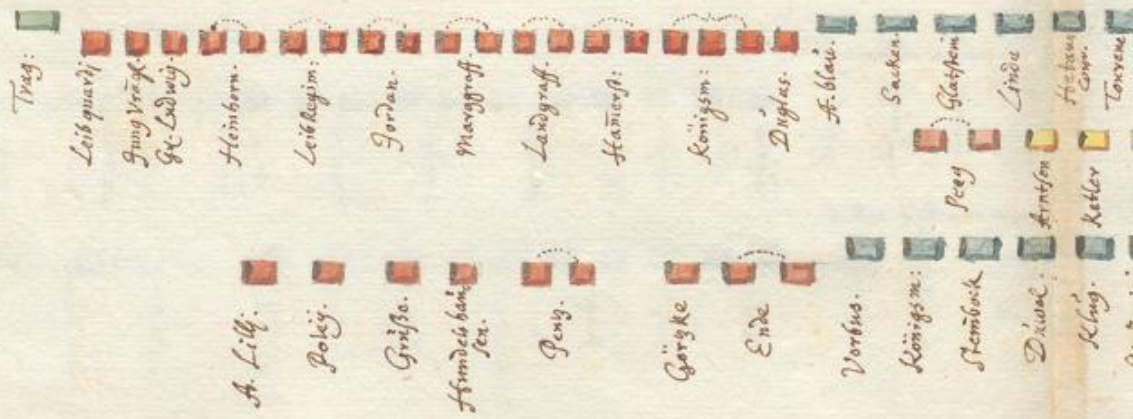 Trag:
Leibguardj
Jung Wrãgl.
Gr. Ludwig.
Heinhorn.
Leib Regim:
Jordan.
Marggraff.
Landgraff.
Hamerst:
Königsm:
Duglas.
A. blau.
Sacken.
Glatstein
Linde
Goru.
Torvane
Pceg
Arntson
Ketler
A. Lillj.
Poleÿ.
Grüße.
Hundelshau
sen.
Pentz.
Görtzke
Ende
Vorbus.
Königsm:
Stembock
Duwal:
Klug.